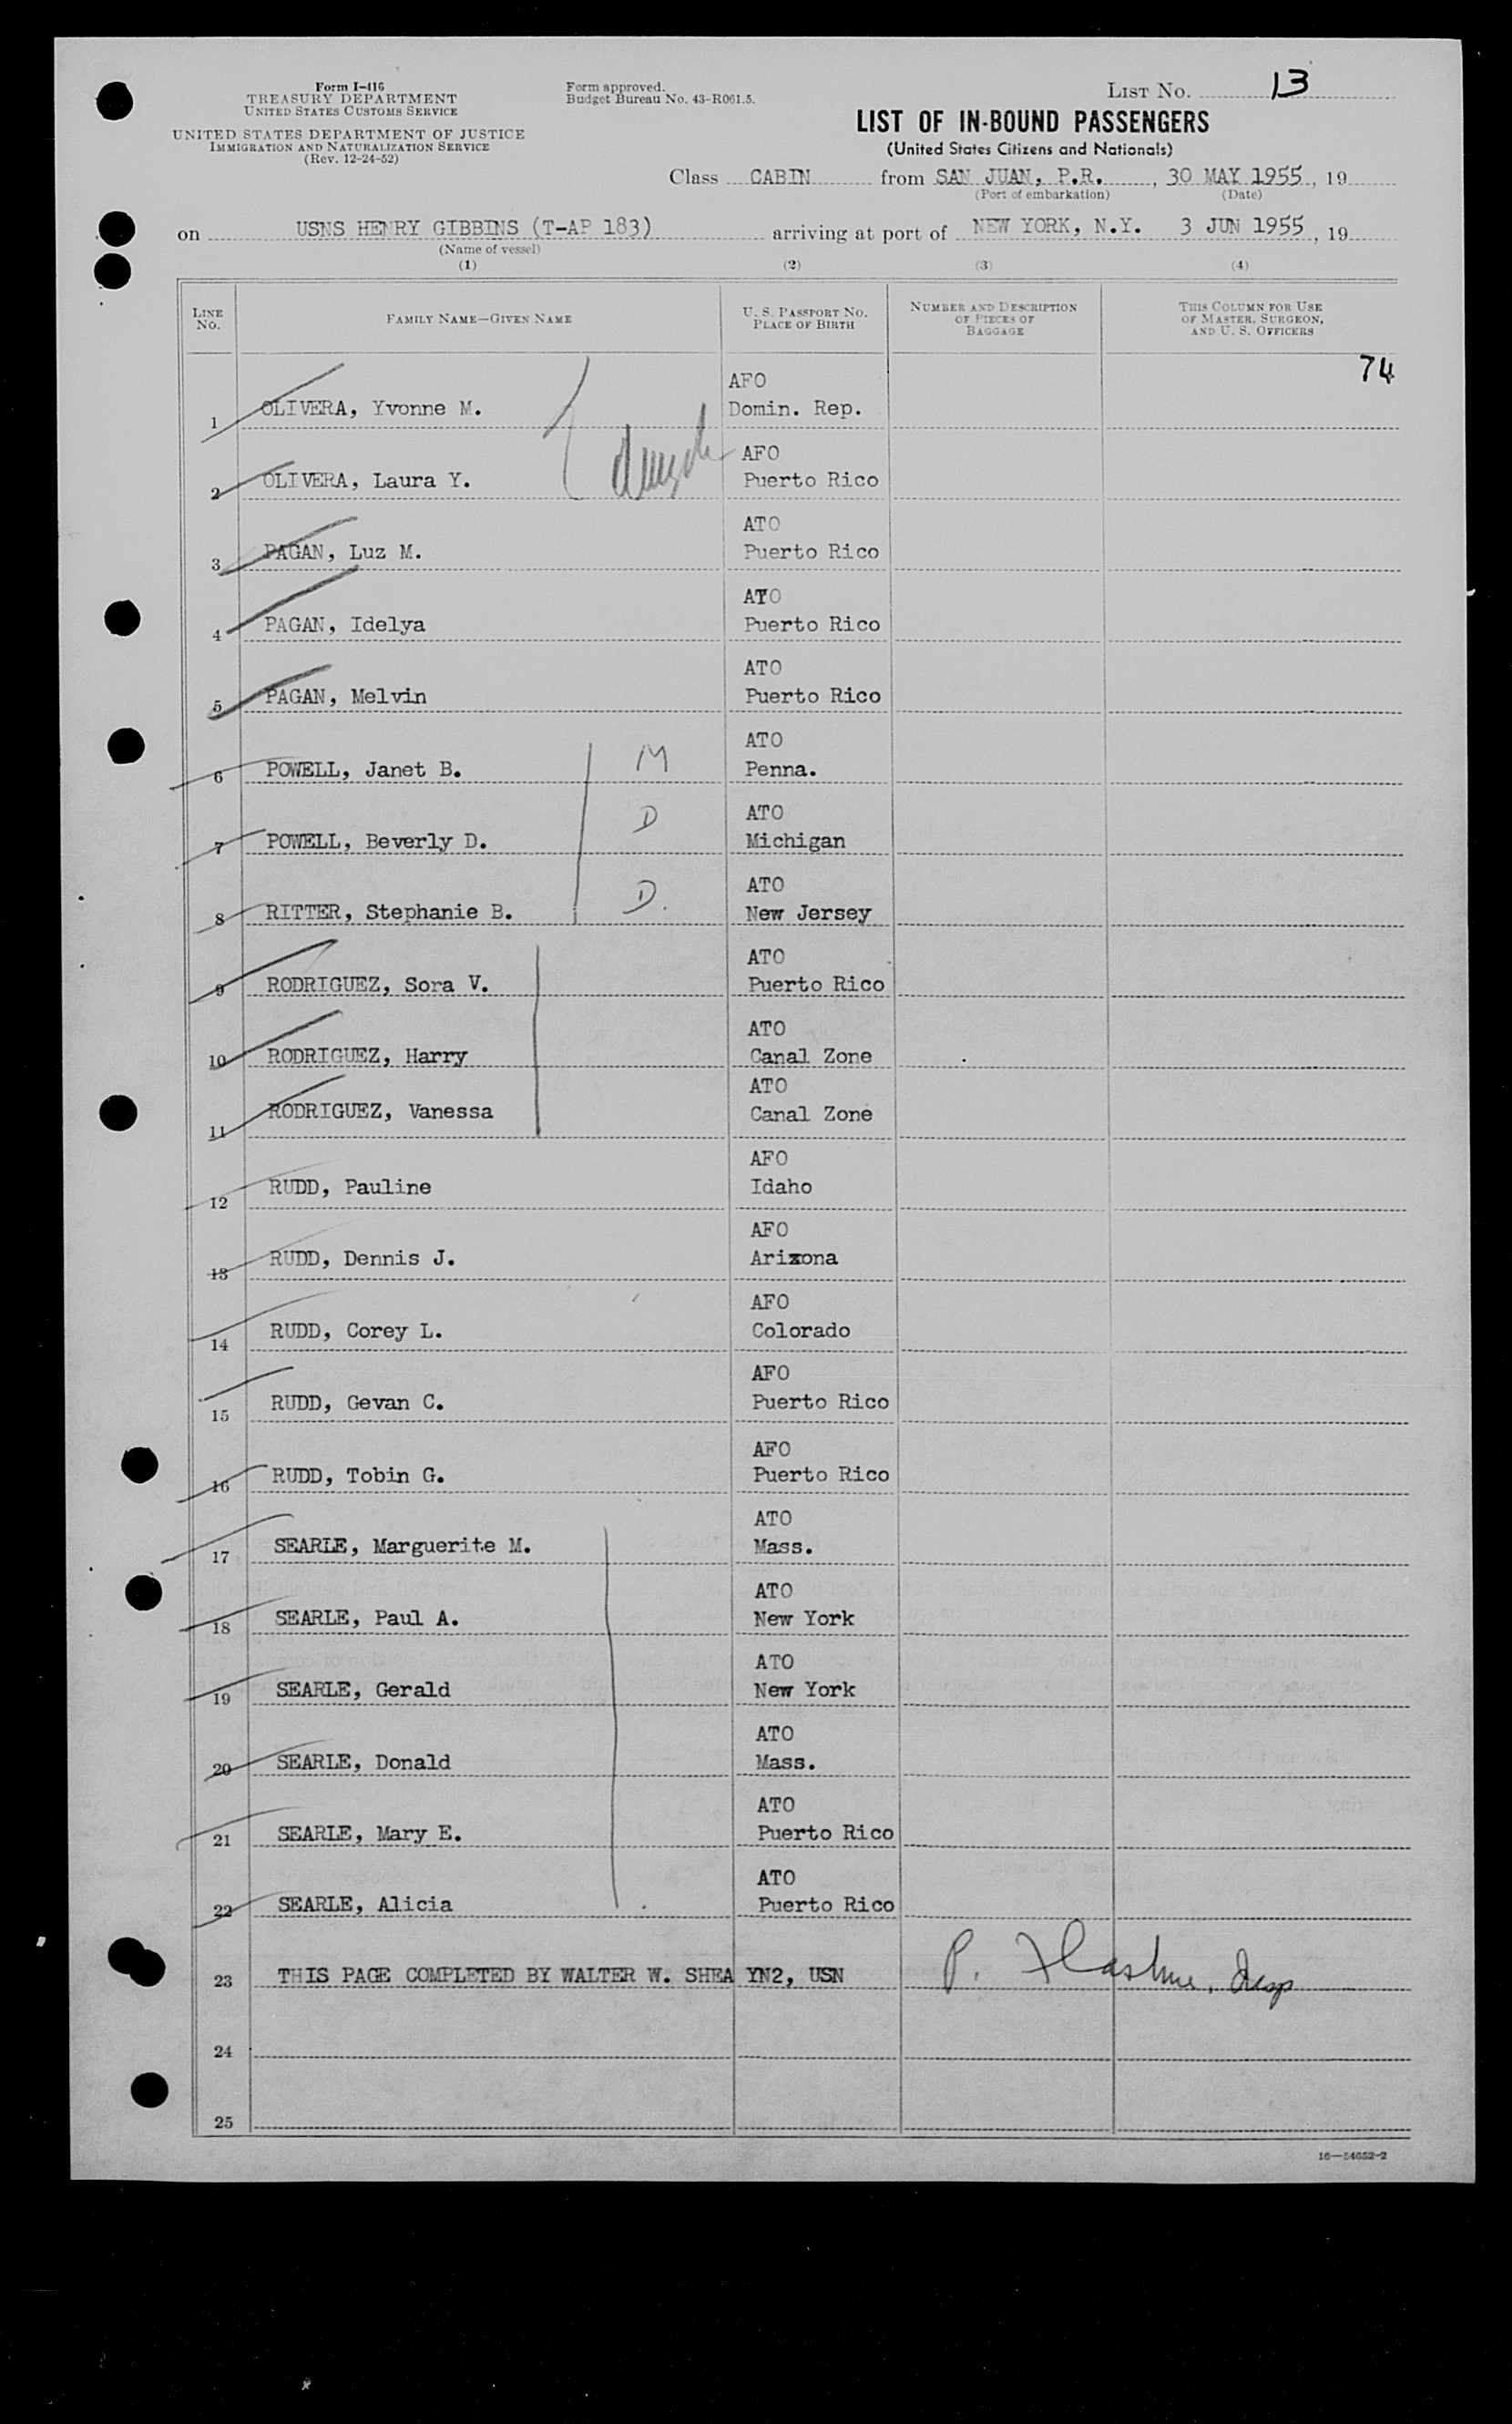 Form I-416
TREASURY DEPARTMENT
UNITED STATES CUSTOMS SERVICE
UNITED STATES DEPARTMENT OF JUSTICE
IMMIGRATION AND NATURALIZATION SERVICE
(Rev. 12-24-52)
Form approved.
Budget Bureau No. 43-R061.5.
LIST NO. 13
LIST OF IN-BOUND PASSENGERS
(United States Citizens and Nationals)
Class CABIN from SAN JUAN, P.R., 30 MAY 1955, 19
(Port of embarkation) (Date)
on USNS HENRY GIBBINS (T-AP 183) arriving at port of NEW YORK, N.Y. 3 JUN 1955, 19
(Name of vessel)
(1) (2) (3) (4)
LINE NO. FAMILY NAME—GIVEN NAME U. S. PASSPORT NO. PLACE OF BIRTH NUMBER AND DESCRIPTION OF PIECES OF BAGGAGE THIS COLUMN FOR USE OF MASTER, SURGEON, AND U. S. OFFICERS
74
AFO
1 OLIVERA, Yvonne M. Domin. Rep.
AFO
2 OLIVERA, Laura Y. Puerto Rico
ATO
3 PAGAN, Luz M. Puerto Rico
ATO
4 PAGAN, Idelya Puerto Rico
ATO
5 PAGAN, Melvin Puerto Rico
ATO
6 POWELL, Janet B. M Penna.
ATO
7 POWELL, Beverly D. D Michigan
ATO
8 RITTER, Stephanie B. D. New Jersey
ATO
9 RODRIGUEZ, Sora V. Puerto Rico
ATO
10 RODRIGUEZ, Harry Canal Zone
ATO
11 RODRIGUEZ, Vanessa Canal Zone
AFO
12 RUDD, Pauline Idaho
AFO
13 RUDD, Dennis J. Arizona
AFO
14 RUDD, Corey L. Colorado
AFO
15 RUDD, Gevan C. Puerto Rico
AFO
16 RUDD, Tobin G. Puerto Rico
ATO
17 SEARLE, Marguerite M. Mass.
ATO
18 SEARLE, Paul A. New York
ATO
19 SEARLE, Gerald New York
ATO
20 SEARLE, Donald Mass.
ATO
21 SEARLE, Mary E. Puerto Rico
ATO
22 SEARLE, Alicia Puerto Rico
23 THIS PAGE COMPLETED BY WALTER W. SHEA YN2, USN P. Insp
24
25
16—54652-2